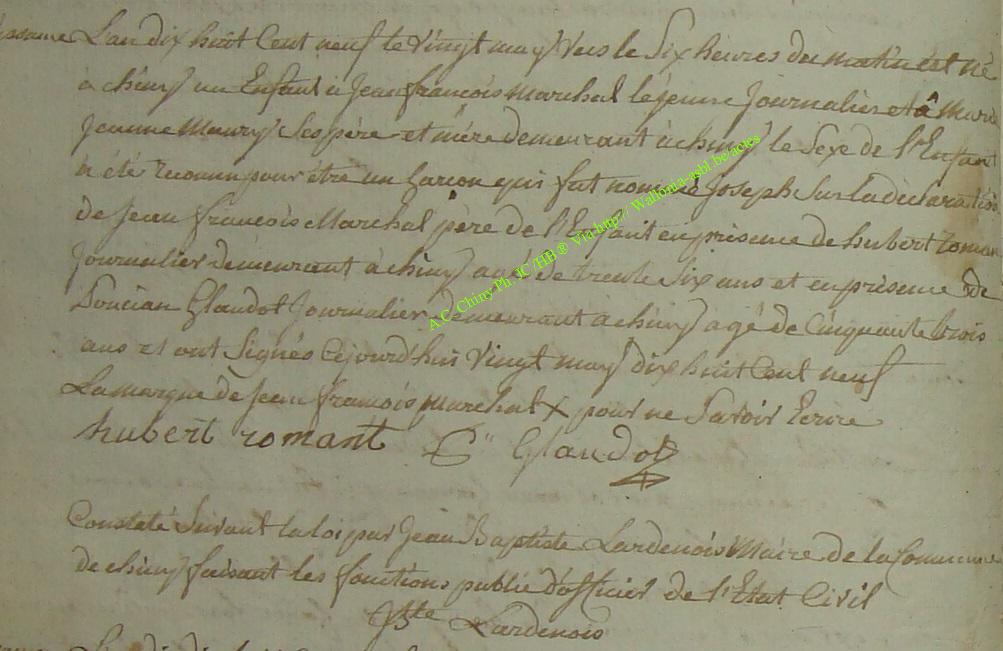 L'an dix huit Cent neuf le vingt may vers le Six heures du matin est né
à chiny un Enfant à Jean françois marchal le jeune Journalier et â Marie
Jeanne Maury Ses père et mère demeurant à chiny le Sexe de l'Enfant
a été reconnu pour être un Garçon qui fut nommé Joseph Sur la déclaration
de Jean françois Marchal père de l'Enfant en présence de hubert roman
Journalier demeurant à chiny agé de trente Six ans et en présence de
Poncian Glaudot Journalier demeurant à chiny agé de Cinquante trois
ans et ont Signés Cejourd'hui vingt may dix huit Cent neuf
La marque de Jean françois marchal X pour ne Savoir Ecrire
hubert romant Glaudot
Constaté Suivant la loi par Jean Baptiste Lardenois Maire de la Commune
de chiny faisant les fonctions public d'officier de l'Etat Civil
Lardenois
A.C. Chiny-Ph. JC/HB® Via http:// Wallonia-asbl.be/actes